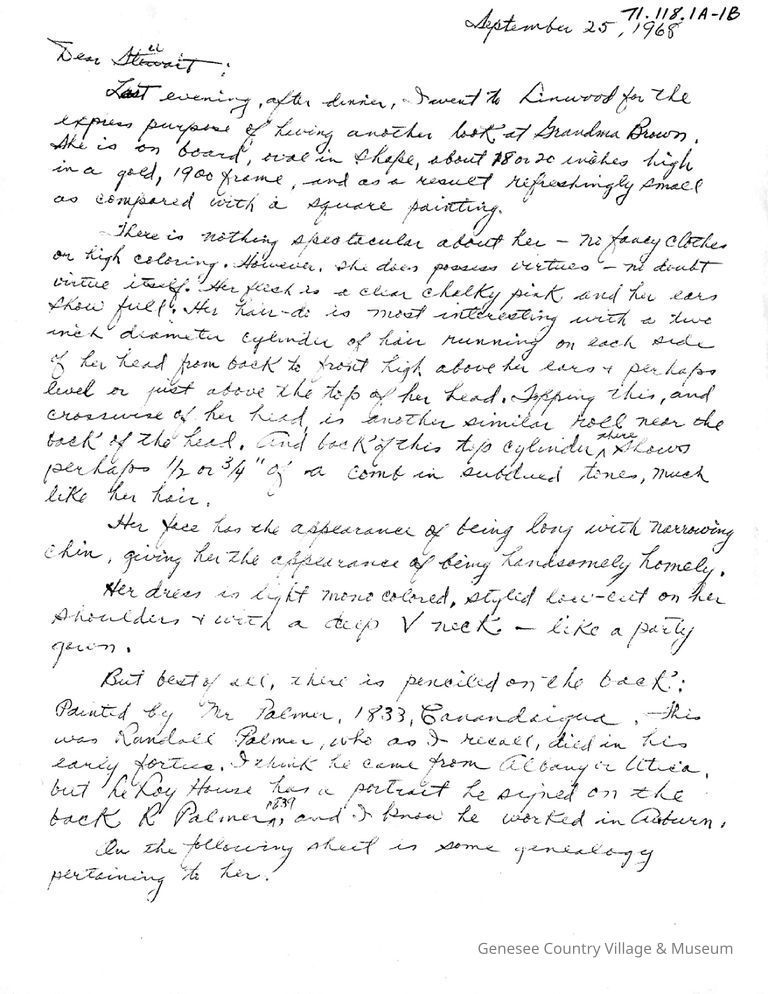 71.118.1A-1B
September 25, 1968
Dear Stewart :
Last evening, after dinner, I went to Linwood for the
express purpose of having another look at Grandma Brown.
She is on board, oval in shape, about 18 or 20 inches high
in a gold, 1900 frame, and as a result refreshingly small
as compared with a square painting.
There is nothing spectacular about her – no fancy clothes
or high coloring. However, she does possess virtues – no doubt
virtue itself. Her flesh is a clear chalky pink and her ears
show full. Her hair-do is most interesting with a two
inch diameter cylinder of hair running on each side
of her head from back to front high above her ears & perhaps
level or just above the top of her head. Topping this, and
crosswise of her head, is another similar roll near the
back of the head. And back of this top cylinder there shows
perhaps 1/2 or 3/4" of a comb in subdued tones, much
like her hair.
Her face has the appearance of being long with narrowing
chin, giving her the appearance of being handsomely homely.
Her dress is light mono colored, styled low-cut on her
shoulders & with a deep V neck – like a party
gown.
But best of all, there is penciled on the back :
Painted by Mr Palmer, 1833, Canandaigua. This
was Randall Palmer, who as I recall, died in his
early forties. I think he came from Albany or Utica,
but LeRoy House has a portrait he signed on the
back R Palmer, 1839, and I know he worked in Auburn.
On the following sheet is some genealogy
pertaining to her.
Genesee Country Village & Museum